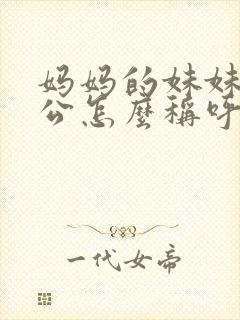 妈妈的妹妹
公怎麼稱呼
一代女帝